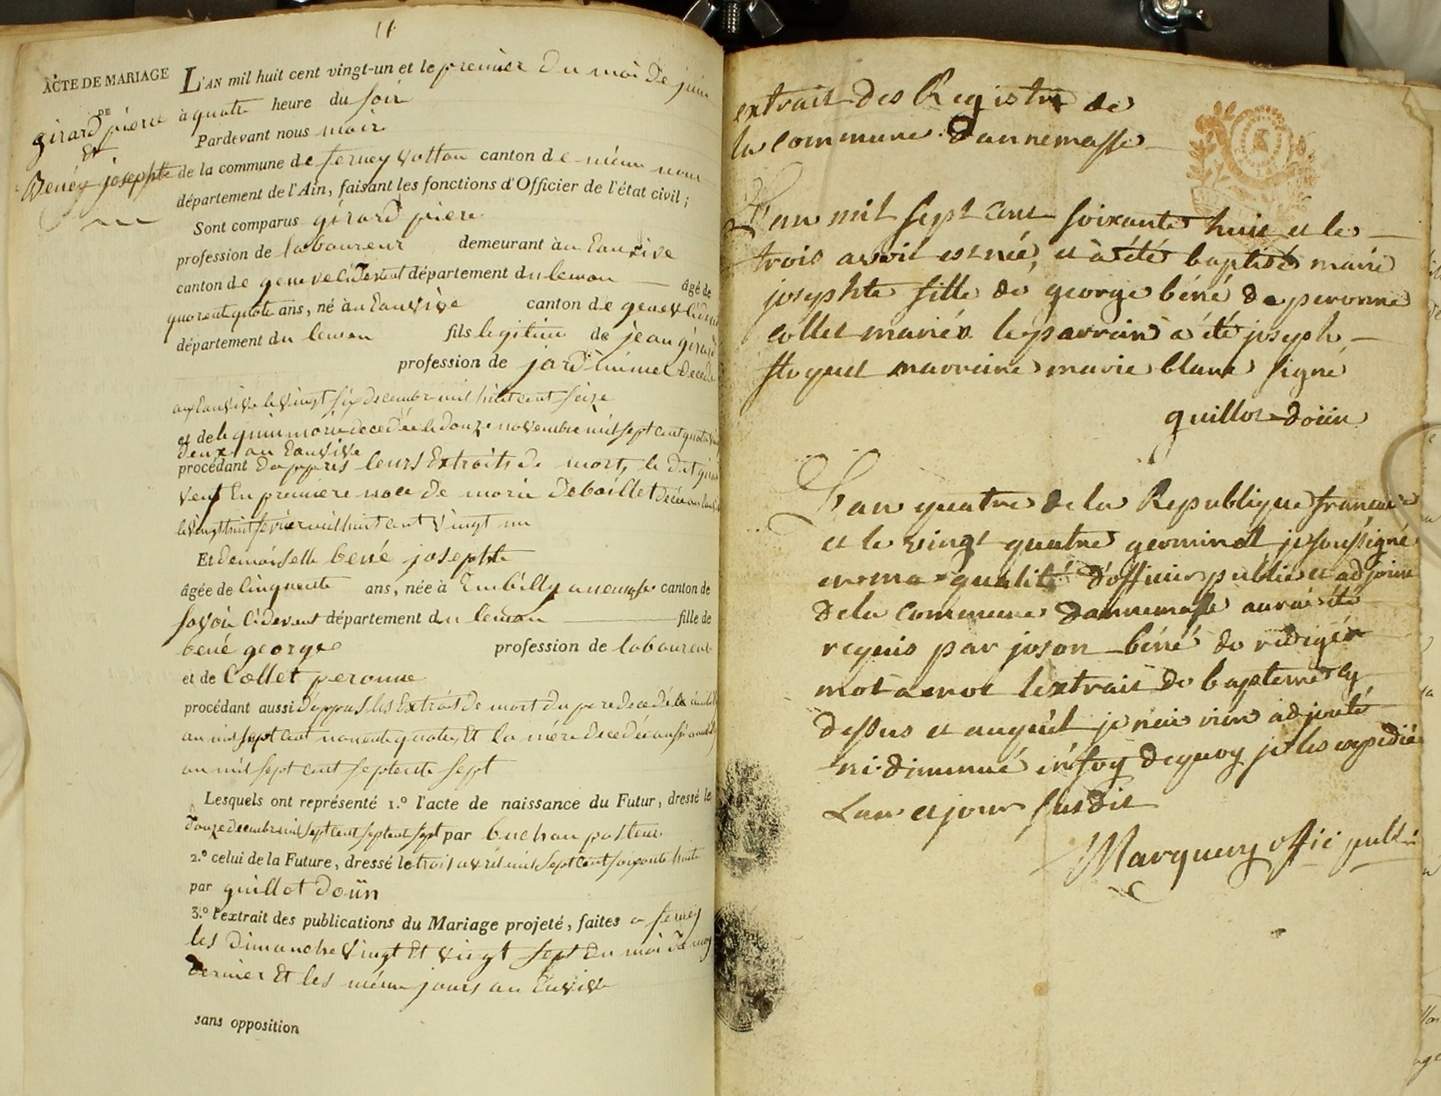 11
ACTE DE MARIAGE
DE
girard pierre
Et
Benéz josephte
L'AN mil huit cent vingt-un et le premier du moi de juin
à quatre heure du soir
Pardevant nous mair
de la commune de ferney voltau canton de méme nom
département de l'Ain, faisant les fonctions d'Officier de l'état civil ;
Sont comparus girard piere
profession de laboureur demeurant à au Eauxive
canton de geneve cidevent département du leman âgé de
quarente quatre ans, né à au Eauvive canton de geneve
département du leman fils legitime de jean girard
profession de jardinnier décédé
aux Eauvive le vingt six decembre mil huit cent seize
et de le quin marie decedée le douze novembre mil sept cent quatre
deux au Eauvive
procédant dappris leurs Extraits de mort, le dit
veuf En premiere noce de marie debaillet
le vingt huit mil huit cent vingt un
Et demoiselle bené josephte
âgée de cinquente ans, née à Embilly canton de
savoie cidevent département du leman fille de
bené george profession de laboureur
et de Collet peronne
procédant aussi d'apprés les Extrait de mort du pere decede
an mil sept cent nonente quatre, Et la mére decedée
an mil sept cent septente sept
Lesquels ont représenté 1.º l'acte de naissance du Futur, dressé le
douze decembre mil sept cent septent sept par buchan pasteur
2.º celui de la Future, dressé le trois avril mil sept cent soixente huite
par guillot doüin
3.º l'extrait des publications du Mariage projeté, faites a ferney
les dimanche vingt Et vingt sept du moi de may
dernier Et les méme jours au Eavive
sans opposition
extrait des Registre de
la commune dannemasse
L'an mil sept cent soixante huit et le
trois avril est née, et à été baptisé marie
josephte fille de george béné de peronne
collet mariés le parrain a été joseph
floquet marraine marie blanc signé
guillot doüin
L'an quatre de la Republique francaise
et le vingt quatre germinal je soussigné
en ma qualité d'officier public et adjoint
de la commune dannemasse aurai été
requis par joson béné de redigér
mot a mot lextrait de bapteme cy
dessus et auquel je n'ai rien adjouté
ni diminué en foy de quoy je les expedié
Lan et jour susdit
Marquery offié public